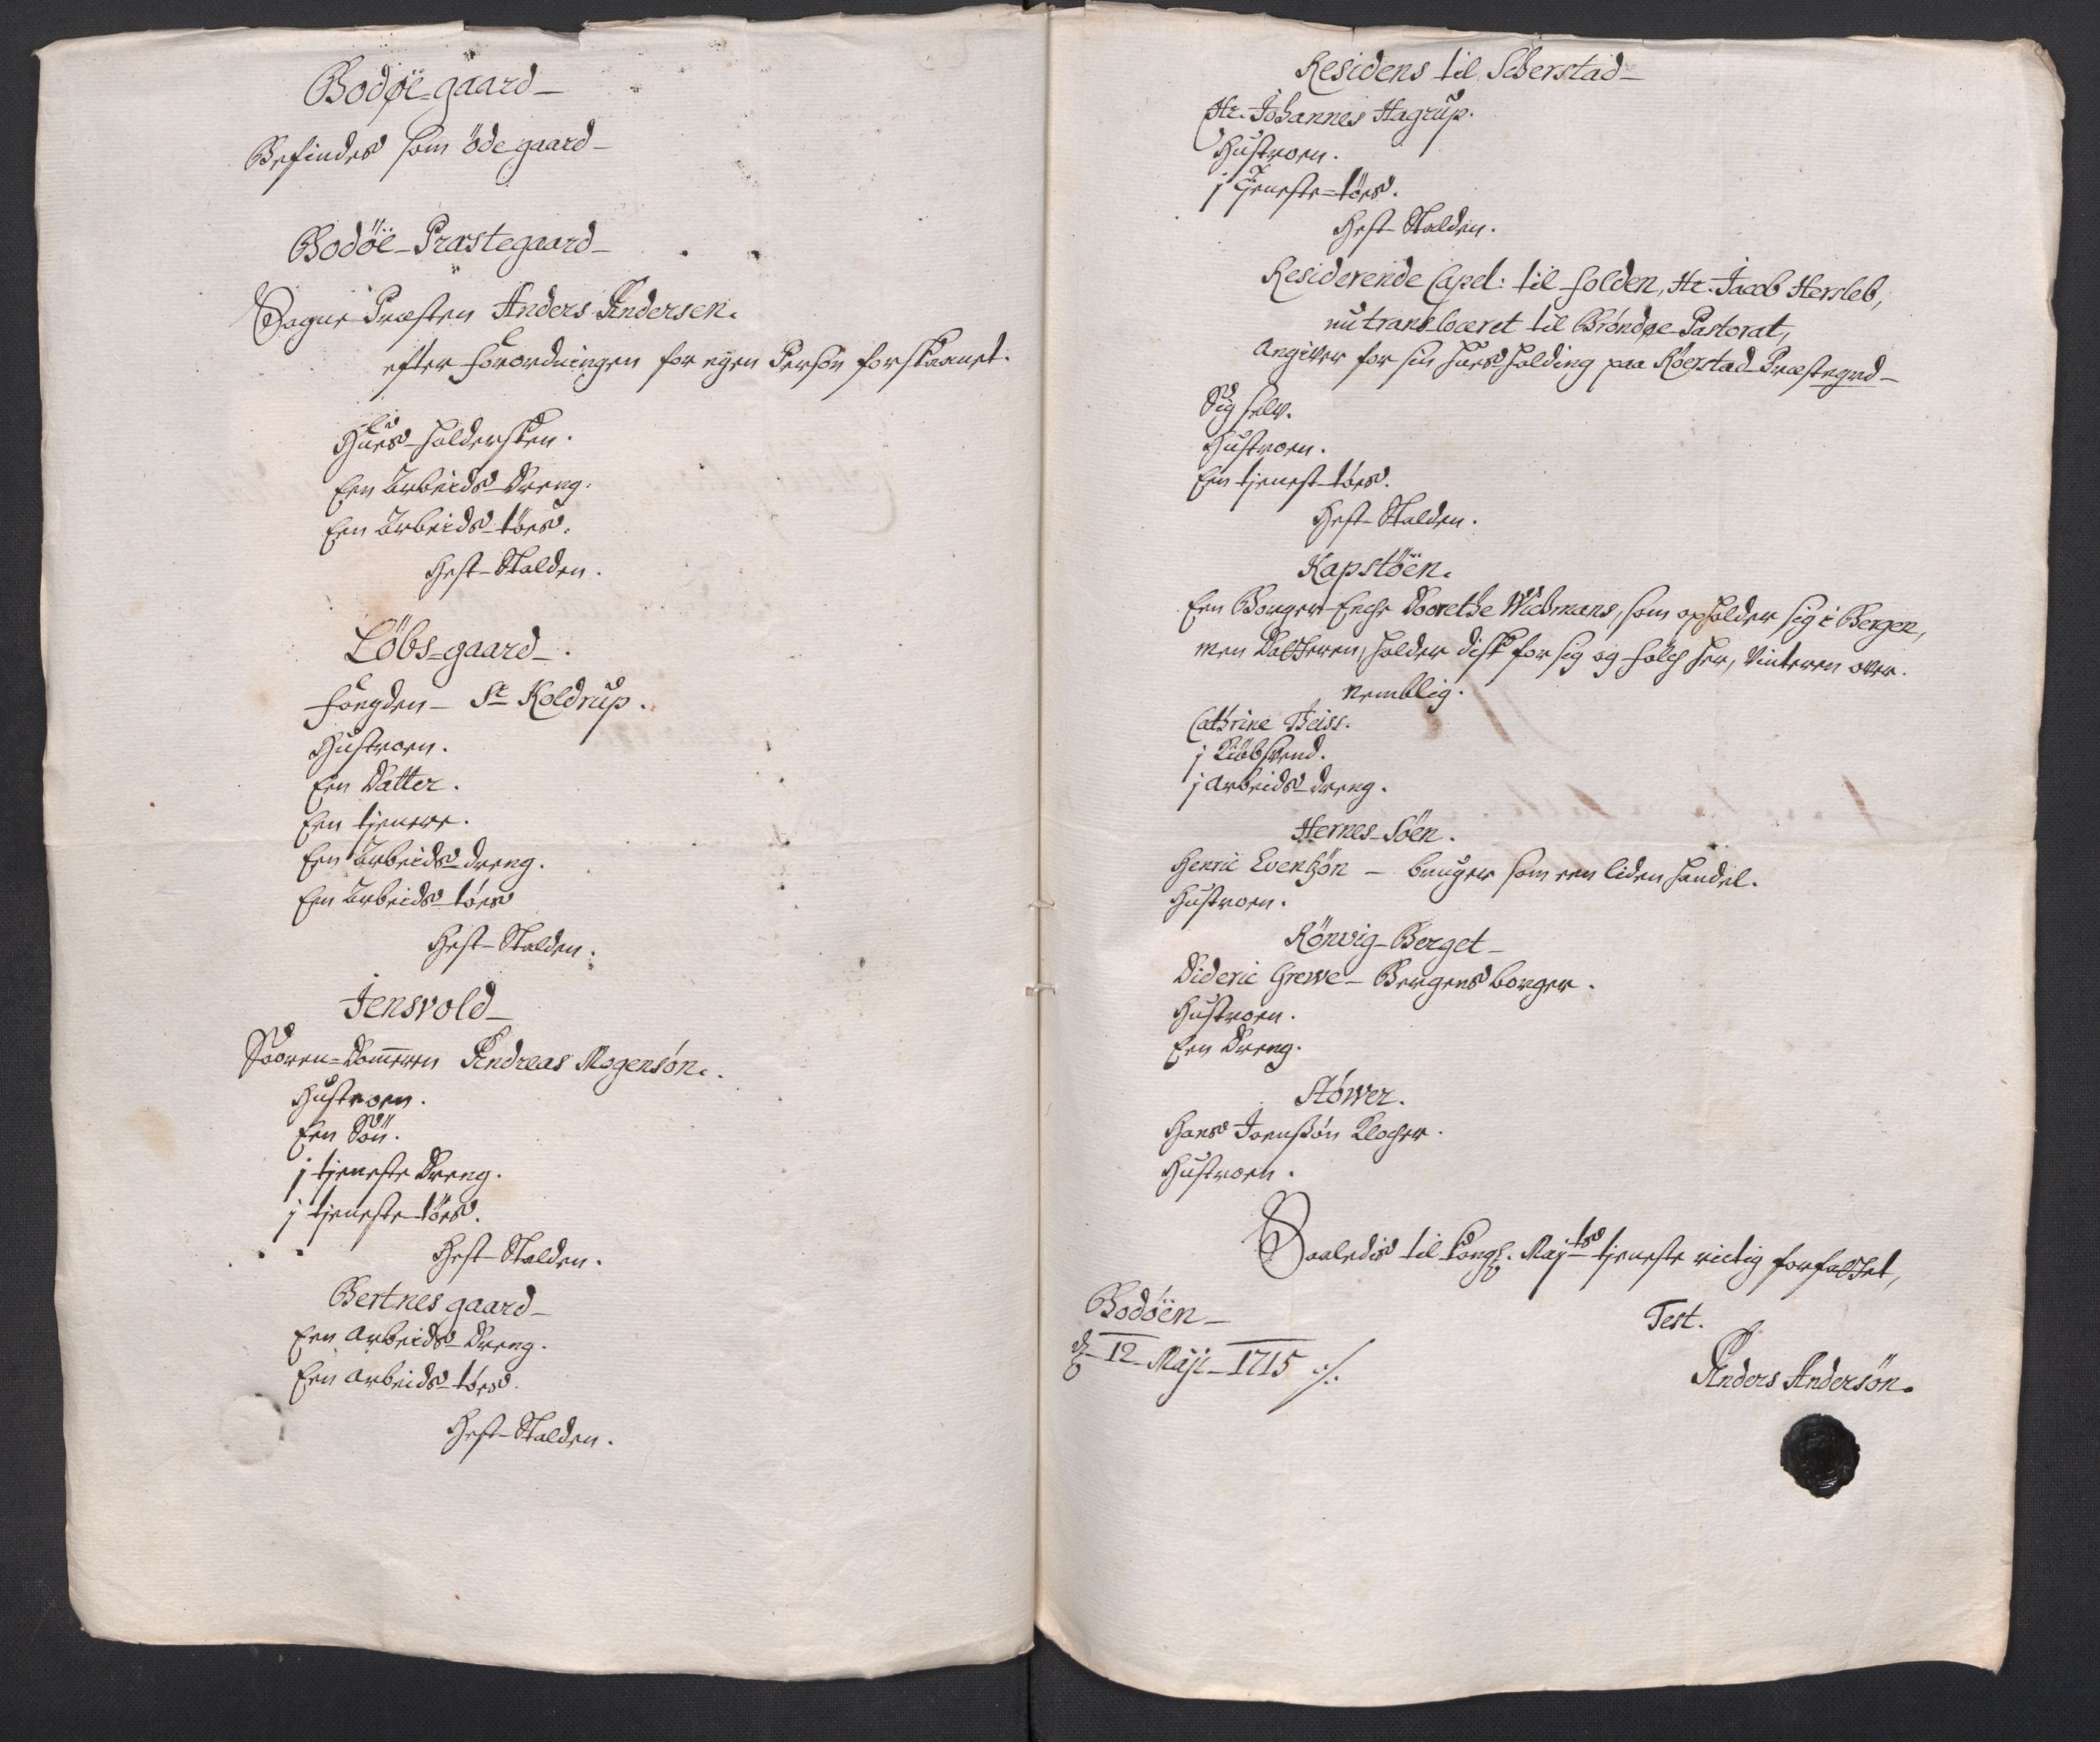 Bodøe-gaard
Befindes som öde gaard

Bodöe-Præstegaard
Sogne-Præsten Anders Andersen.
efter Forordningen for egen Persohn forskaanet.
Huus-holdersken.
Een Arbeids-Dreng.
Een Arbeids-töes.
Hest-Skalden.

Löbs-gaard
Fougden - Sr Koldrup.
Hustroen.
Een Datter.
Een tjenere.
Een Arbeids-dreng.
Een Arbeids-töes
Hest-Skalden.

Jensvold
Sooren-Dommeren Andreas Mogensøn.
Hustroen.
Een Sön.
j tjeneste Dreng.
j tjeneste-töes.
Hest-Skalden.
Bertnes gaard
Een Arbeids-Dreng.
Een Arbeids-töes.
Hest-Skalden.

Residens til Scherstad
Hr. Johannes Hagrup.
Hustroen.
j Tjeneste-töes.
Hest-Skalden.
Residerende Capel: til Folden, Hr. Jacob Hersleb,
nu transloceret til Brøndøe Pastorat,
Angiver for sin huus-holding paa Röerstad-Præstegrd
Sig selv.
Hustroen.
Een tjenest-töes.
Hest-Skalden.
Kapstöen.
Een Borger-Enche Doorethe Wichmans, som opholder sig i Bergen,
men Datteren, holder disk for sig og folch her, Vinteren over.
Nemblig.
Cathrine Theiss.
j Kiöbsvend.
j Arbeids-dreng.
Hernes-Söen.
Henric Eventsøn - bruger som een liden handel.
Hustroen.
Rönvig-Berget
Dideric Grewe - Bergens borger.
Hustroen.
Een Dreng.
Støwer.
Hans Joensøn Klocher.
Hustroen.
Saaledis til Kongl. Maytts tjeneste rictig forfattet,
Bodöen
d. 12 Maji 1715 ./.
Test.
Anders Andersøn.